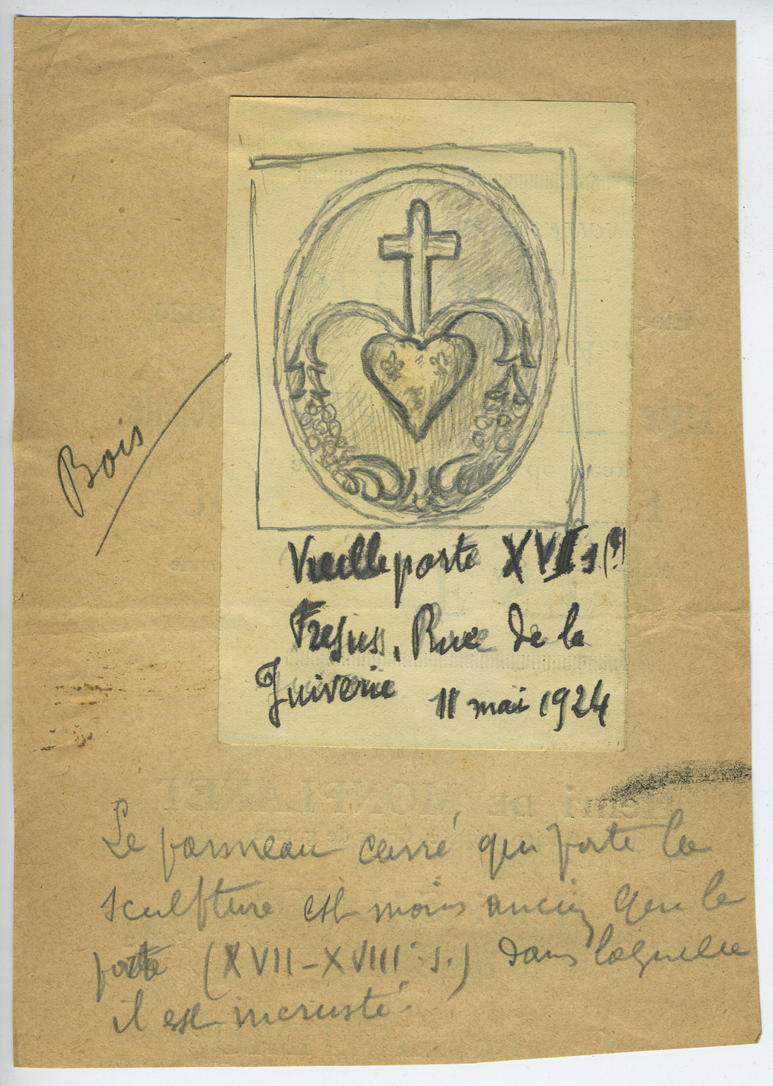 Bois
Vieille porte XVII s (?)
Frejus, Rue de la
Juiverie 11 mai 1924
Henri DE MONPLANET
Le panneau carré qui porte la
sculpture est moins ancien que la
porte (XVII-XVIII s.) dans laquelle
il est incrusté.